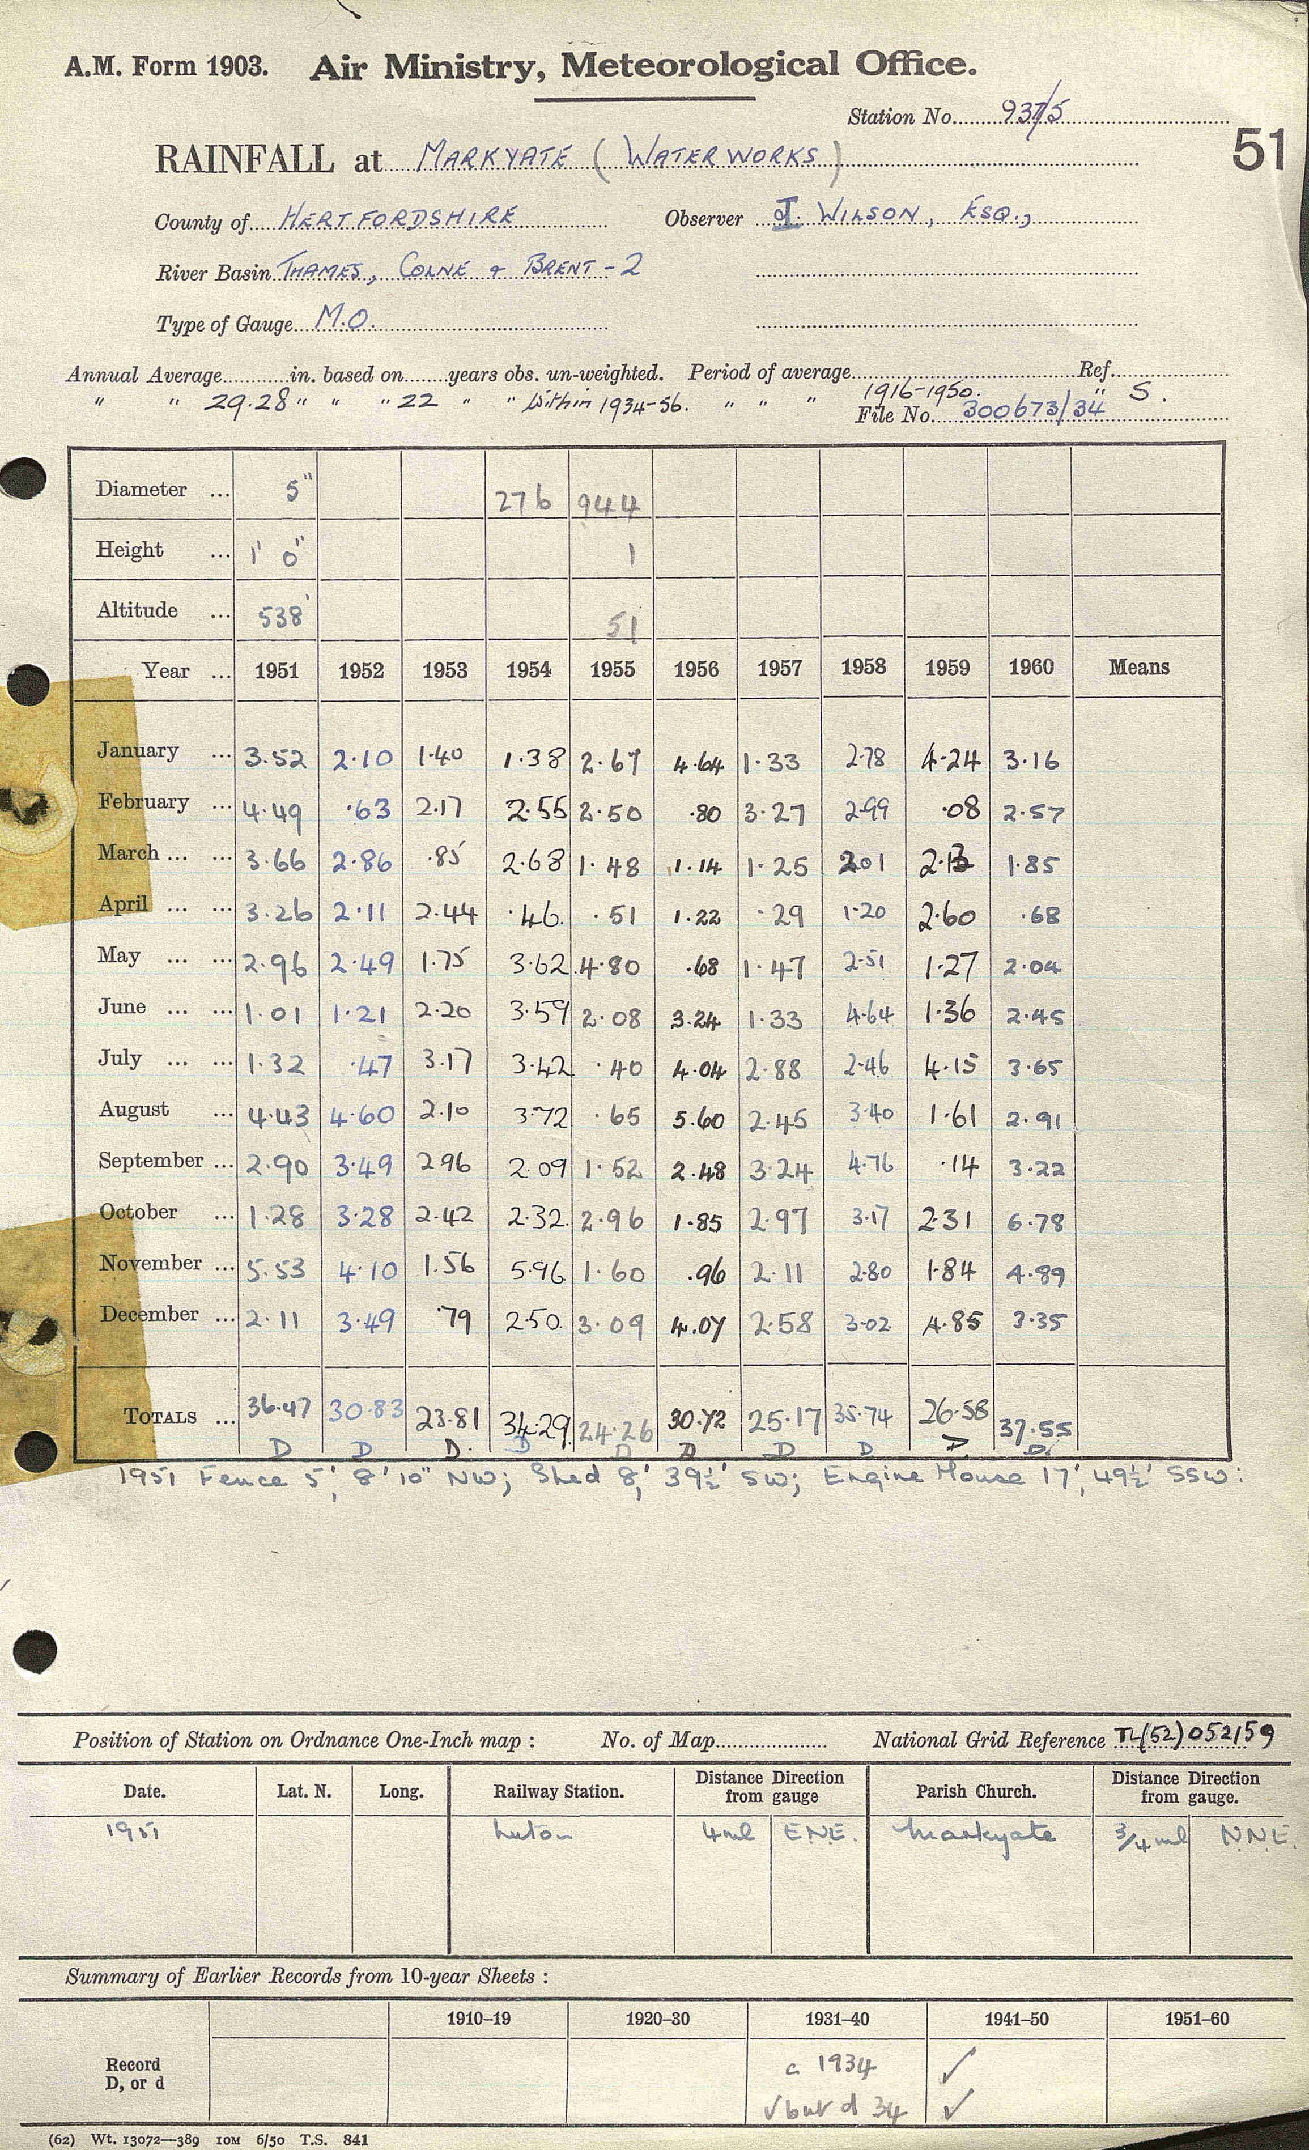 A.M. Form 1903. Air Ministry, Meteorological Office.
Station No. 937/5
51
RAINFALL at MARKYATE (WATER WORKS)
County of HERTFORDSHIRE Observer J. WILSON, ESQ.,
River Basin THAMES, COLNE & BRENT - 2
Type of Gauge M.O.
Annual Average in. based on years obs. un-weighted. Period of average Ref.
" " 29.28 " " " 22 " " Within 1934-56. " " " 1916-1950. " S.
File No. 300673/34
Diameter ... 5" 276 944
Height ... 1' 0" 1
Altitude ... 538' 51
Year ... 1951 1952 1953 1954 1955 1956 1957 1958 1959 1960 Means
January ... 3.52 2.10 1.40 1.38 2.67 4.64 1.33 2.78 4.24 3.16
February ... 4.49 .63 2.17 2.55 2.50 .80 3.27 2.99 .08 2.57
March ... ... 3.66 2.86 .85 2.68 1.48 1.14 1.25 2.01 2.13 1.85
April ... ... 3.26 2.11 2.44 .46 .51 1.22 .29 1.20 2.60 .68
May ... ... 2.96 2.49 1.75 3.62 4.80 .68 1.47 2.51 1.27 2.04
June ... ... 1.01 1.21 2.20 3.59 2.08 3.24 1.33 4.64 1.36 2.45
July ... ... 1.32 .47 3.17 3.42 .40 4.04 2.88 2.46 4.15 3.65
August ... 4.43 4.60 2.10 3.72 .65 5.60 2.45 3.40 1.61 2.91
September ... 2.90 3.49 2.96 2.09 1.52 2.48 3.24 4.76 .14 3.22
October ... 1.28 3.28 2.42 2.32 2.96 1.85 2.97 3.17 2.31 6.78
November ... 5.53 4.10 1.56 5.96 1.60 .96 2.11 2.80 1.84 4.89
December ... 2.11 3.49 .79 2.50 3.09 4.07 2.58 3.02 4.85 3.35
TOTALS ... 36.47 30.83 23.81 34.29 24.26 30.72 25.17 35.74 26.58 37.55
D D D. D D D D D D D.
1951 Fence 5', 8' 10" NW; Shed 8', 39½' SW; Engine House 17', 49½' SSW:
Position of Station on Ordnance One-Inch map : No. of Map National Grid Reference TL(52)052159
Date. Lat. N. Long. Railway Station. Distance Direction from gauge Parish Church. Distance Direction from gauge.
1951 Luton 4ml ENE. Markyate 3/4 ml NNE.
Summary of Earlier Records from 10-year Sheets :
1910–19 1920–30 1931–40 1941–50 1951–60
Record D, or d
c 1934 ✓
✓ but d 34 ✓
(62) Wt. 13072—389 10M 6/50 T.S. 841